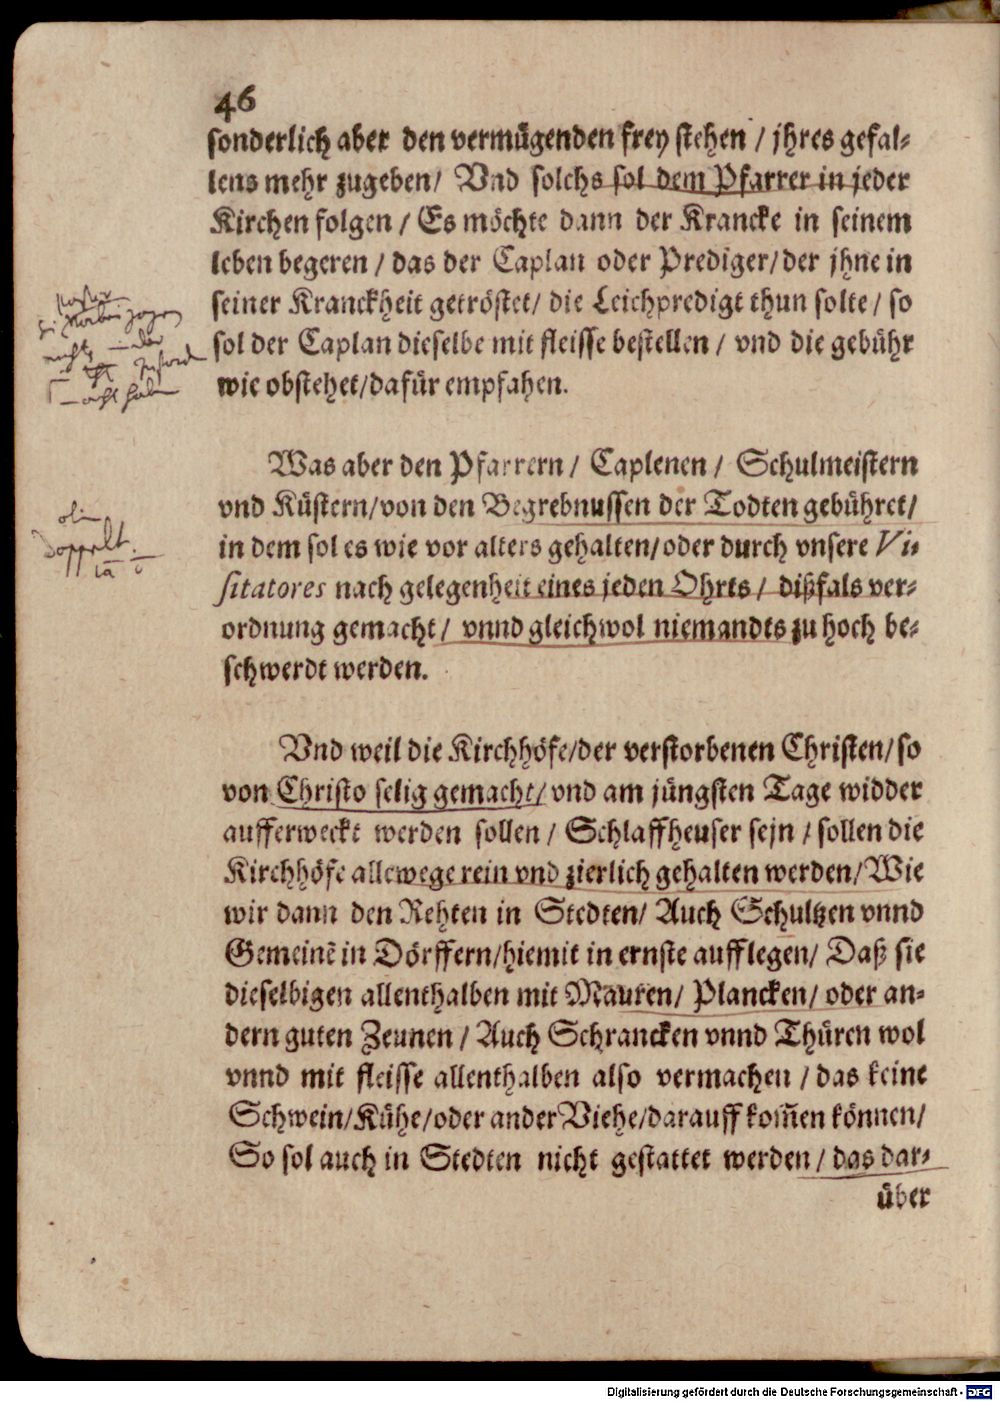 46
sonderlich aber den vermügenden frey stehen / jhres gefal-
lens mehr zugeben/ Vnd solchs sol dem Pfarrer in jeder
Kirchen folgen / Es möchte dann der Krancke in seinem
leben begeren / das der Caplan oder Prediger/der jhne in
seiner Kranckheit getröstet/ die Leichpredigt thun solte / so
sol der Caplan dieselbe mit fleisse bestellen / vnd die gebühr
wie obstehet/dafür empfahen.
Was aber den Pfarrern / Caplenen / Schulmeistern
vnd Küstern/von den Begrebnussen der Todten gebühret/
in dem sol es wie vor alters gehalten/oder durch vnsere Vi-
sitatores nach gelegenheit eines jeden Ohrts / dißfals ver-
ordnung gemacht / vnnd gleichwol niemandts zu hoch be-
schwerdt werden.
olim
doppelt
Vnd weil die Kirchhöfe/der verstorbenen Christen/so
von Christo selig gemacht/ vnd am jüngsten Tage widder
aufferweckt werden sollen / Schlaffheuser sejn / sollen die
Kirchhöfe allewege rein vnd zierlich gehalten werden/ Wie
wir dann den Rehten in Stedten/ Auch Schultzen vnnd
Gemeinē in Dörffern/hiemit in ernste aufflegen/ Daß sie
dieselbigen allenthalben mit Mauren/ Plancken/ oder an-
dern guten Zeunen / Auch Schrancken vnnd Thüren wol
vnnd mit fleisse allenthalben also vermachen / das keine
Schwein/Kühe/oder ander Viehe/darauff kom̄en können/
So sol auch in Stedten nicht gestattet werden / das dar-
über
Digitalisierung gefördert durch die Deutsche Forschungsgemeinschaft - DFG